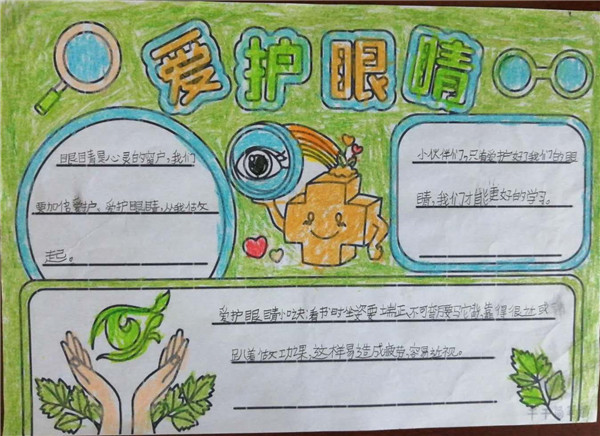 爱护眼睛
眼睛是心灵的窗户，我们
要加倍爱护。爱护眼睛，从我做
起。
小伙伴们，只有爱护好了我们的眼
睛，我们才能更好的学习。
爱护眼睛小诀：看书时坐姿要端正、不可弯腰驼背、靠得很近或
趴着做功课，这样易造成疲劳，容易近视。